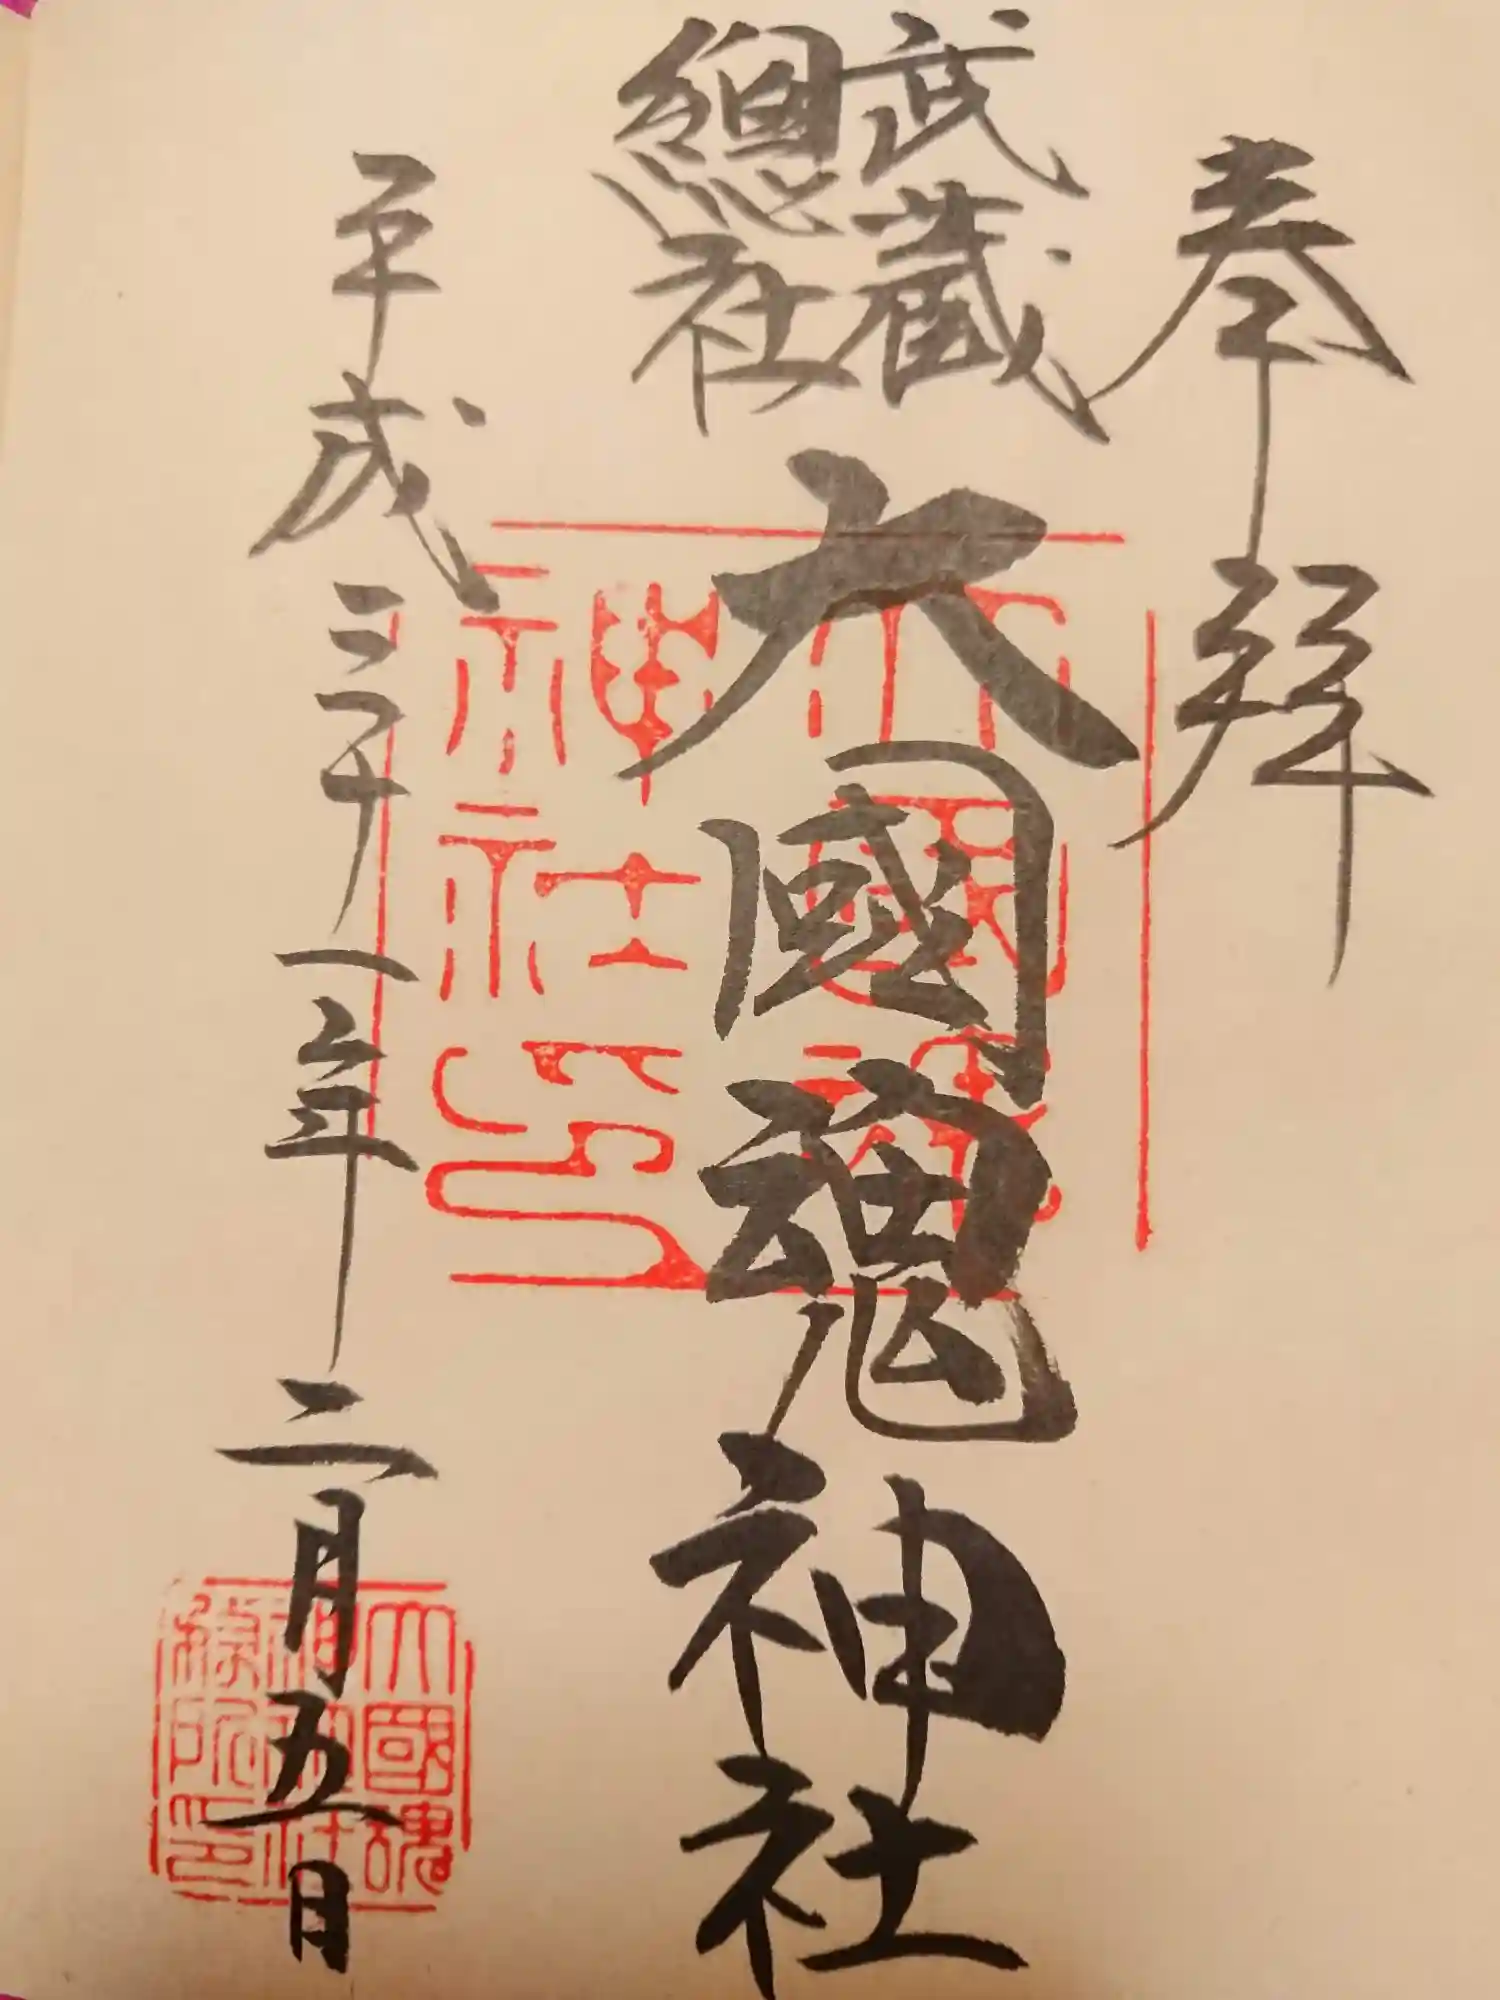 奉拝
武蔵
總社
大國魂神社
平成三十一年二月五日
大國魂
神社印
大國魂
神社社
務所印